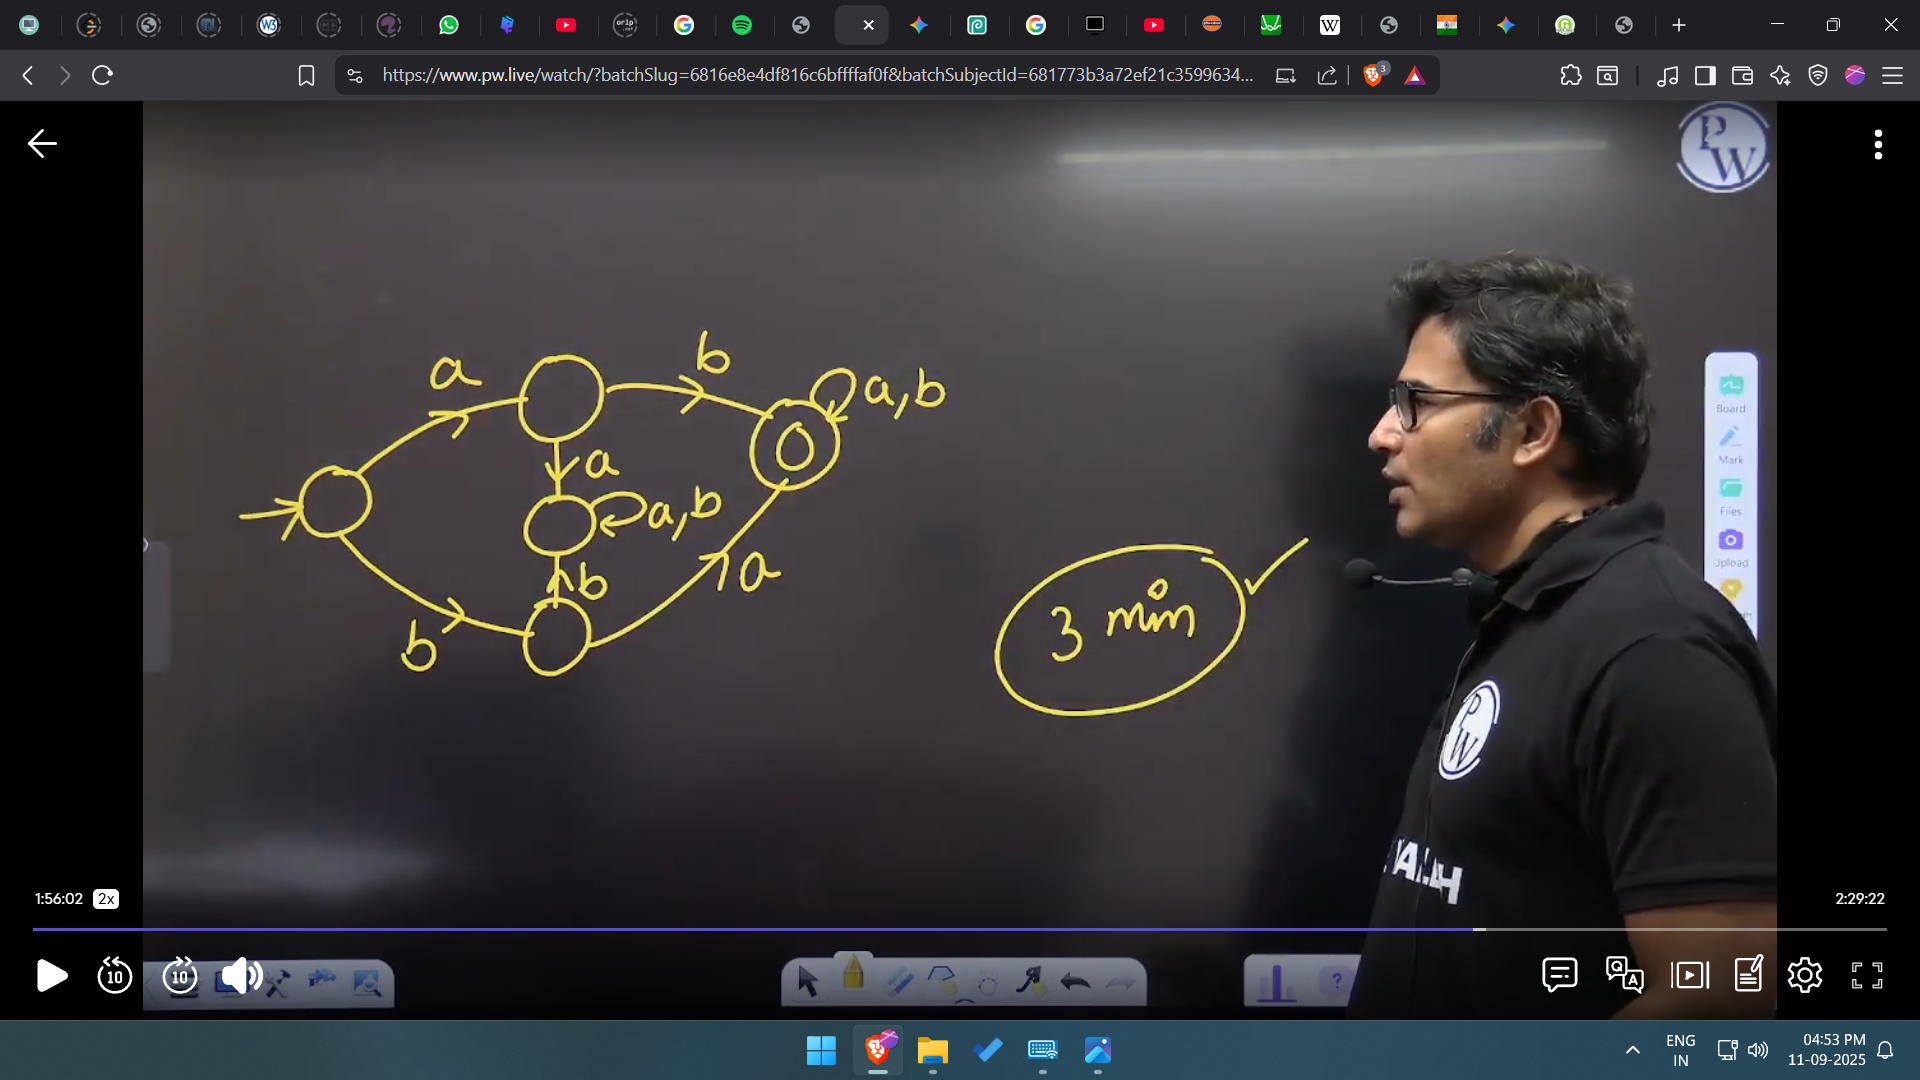 https://www.pw.live/watch/?batchSlug=6816e8e4df816c6bffffaf0f&batchSubjectId=681773b3a72ef21c3599634...
3
PW
a
b
a,b
a
a,b
b
a
b
3 min
Board
Mark
Files
Upload
PW
1:56:02 2x
2:29:22
10 10
ENG
IN
04:53 PM
11-09-2025